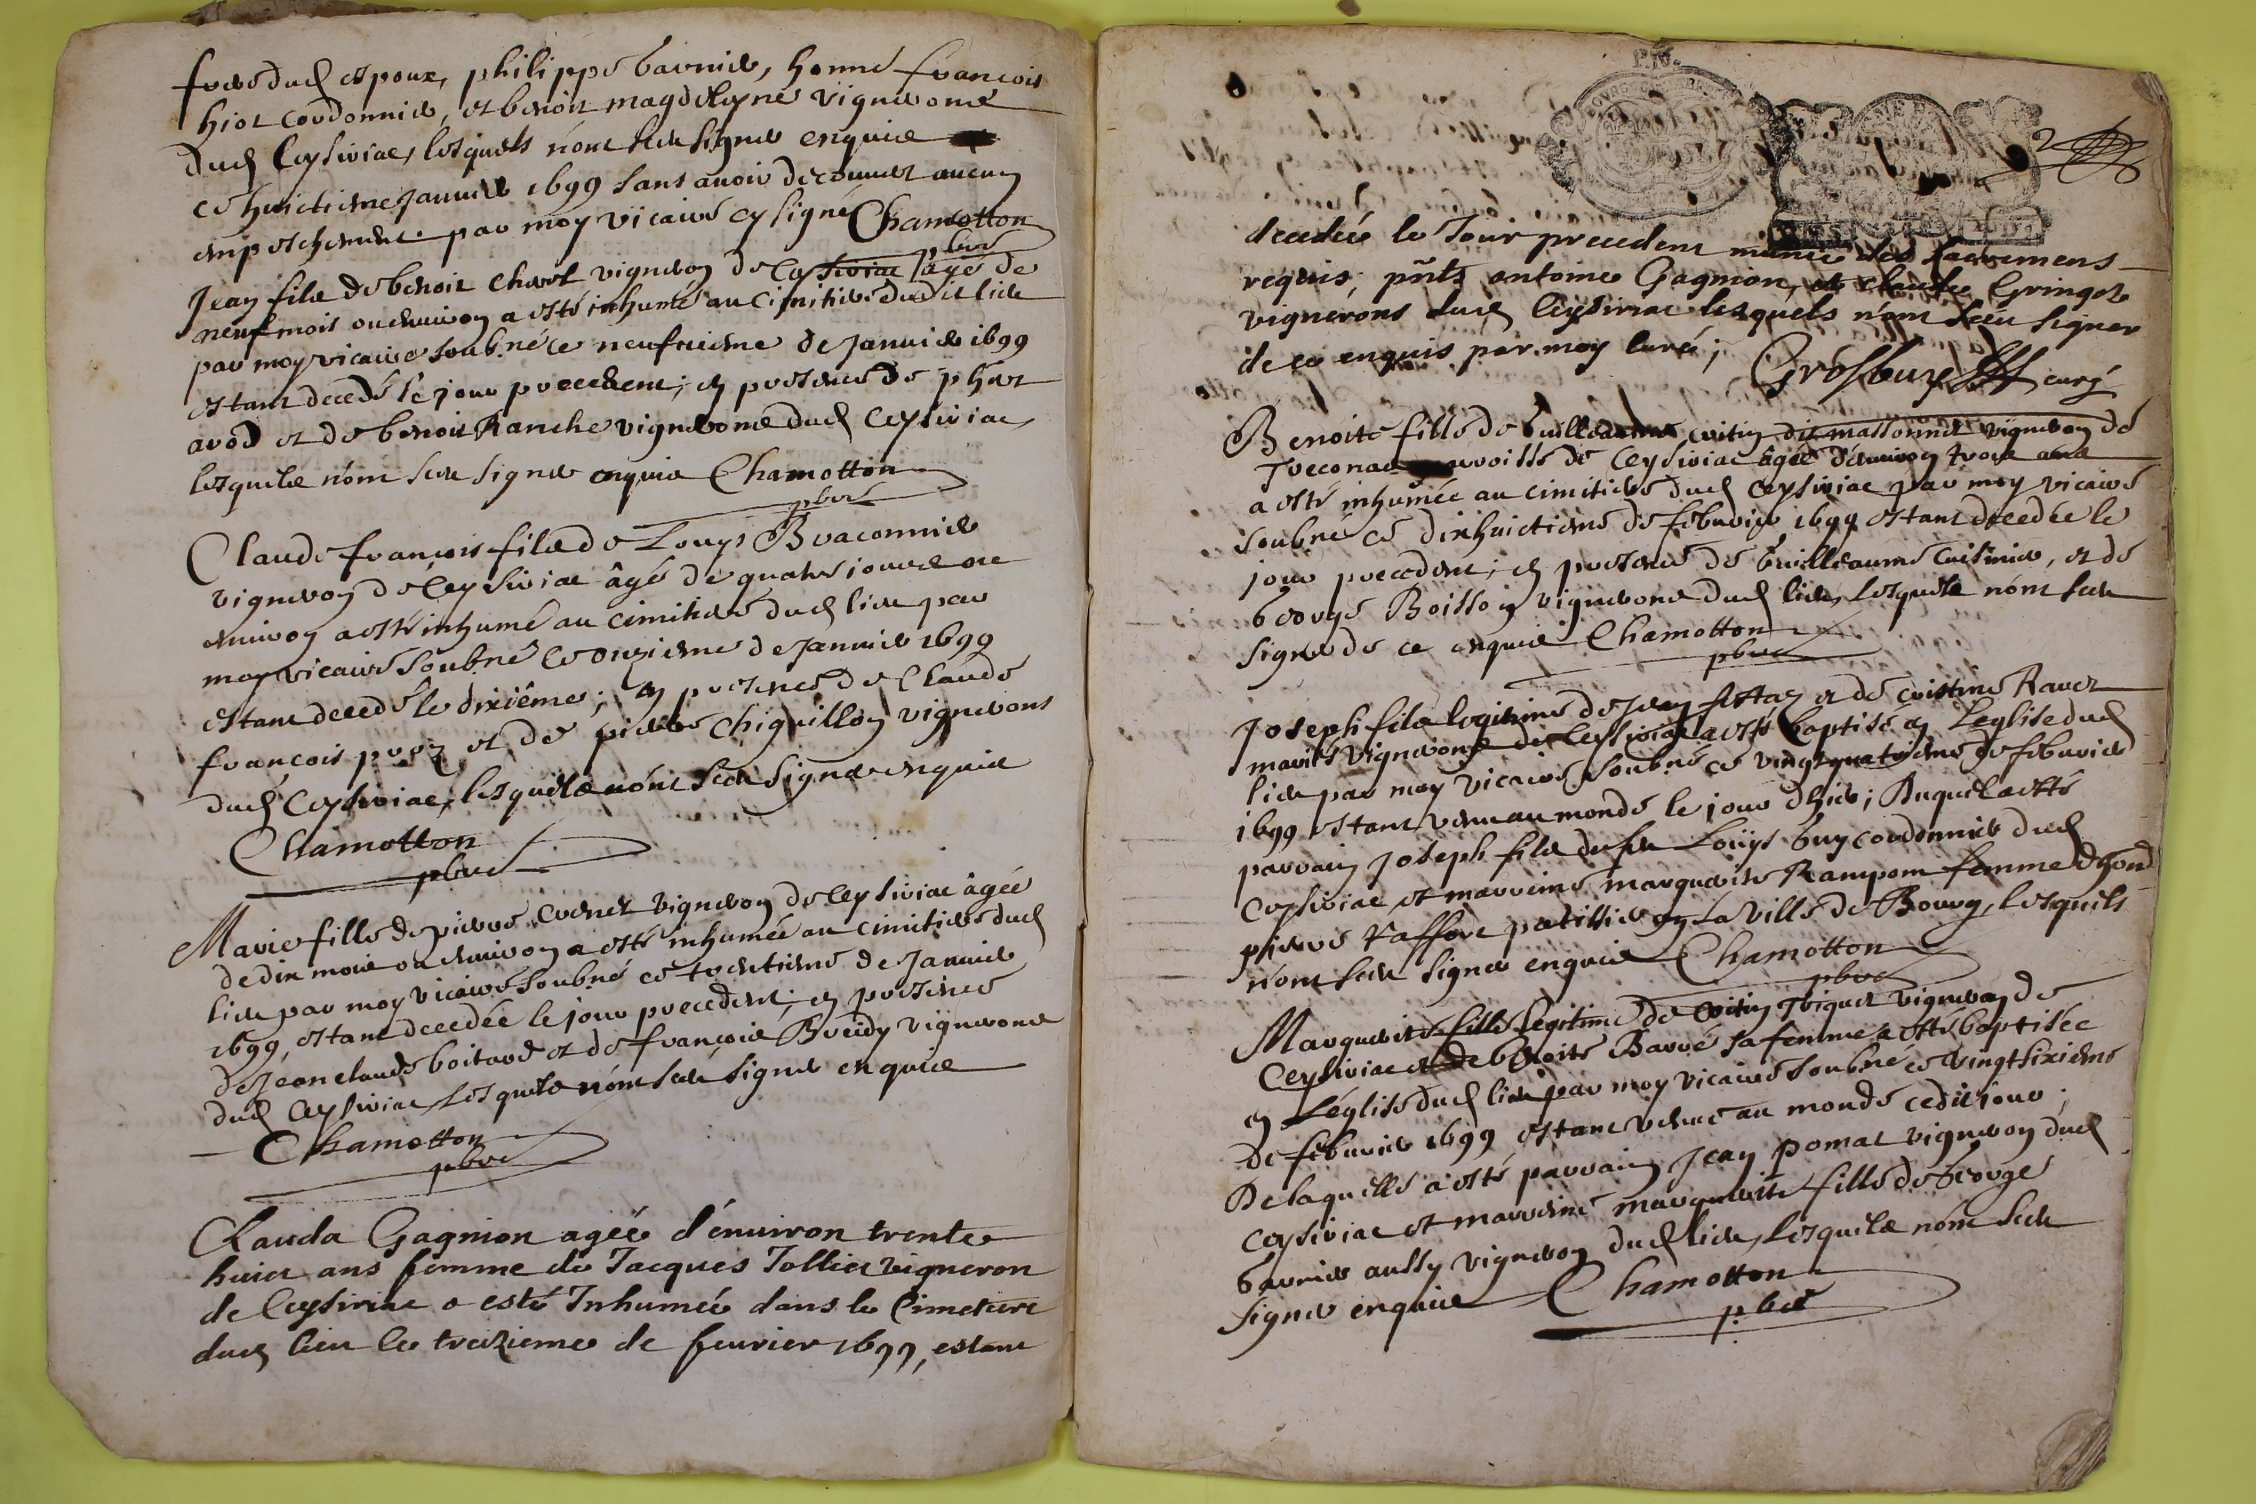 freres dud espoux, philippe garnier, honné francois
hiot cordonnier, et benoit magdeleyne vignerons
dud Ceysiriac, lesquels nónt sceu signer enquis
ce huictieme Janvier 1699 sans avoir decouuert aucun
empeschement par moy vicaire cy signé Chamotton
pbre
Jean fils de benoit Charl vigneron de Ceysiriac âgé de
neuf mois ou enuiron a esté inhumé au cimitiere dudit lieu
par moy vicaire soubné ce neufuieme de Januier 1699
estant decedé le jour precedent; en presence de phert
avod et de benoit Ranche vignerons dud Ceysiriac
lesquels nónt sceu signer enquis Chamotton
pbre
Claude françois fils de Louys Braconnier
vigneron de Ceysiriac âgé de quatre jours ou
enuiron a esté inhumé au cimitiere dud lieu par
moy vicaire soubné ce onzieme de Januier 1699
estant decedé le dixiéme; en presence de Claude
françois et de pierre Chiquillon vignerons
dud Ceysiriac, lesquels nónt sceu signer enquis
Chamotton
pbre
Marie fille de pierre Cornet vigneron de Ceysiriac âgée
de dix mois ou enuiron a esté inhumée au cimitiere dud
lieu par moy vicaire soubné ce trentieme de Januier
1699, estant decedée le jour precedent; en presence
de Jean claude boitard et de françois Breidy vignerons
dud Ceysiriac lesquels nónt sceu signer enquis
Chamotton
pbre
Clauda Gagnion agée d'énuiron trente
huict ans femme de Jacques Tollier vigneron
de Ceysiriac a esté Inhumée dans le Cimetiere
dud lieu le treizieme de feurier 1699, estant
2
decedée le Jour precedent munie des sacremens
requis, pñts antoine Gagnion, et claude Gringoz
vignerons dud Ceysiriac lesquels nónt sceu signer
de ce enquis par moy curé;
Grosbuy curé
Benoite fille de Guilleaume critin dit massonnet vigneron de
Treconas parroisse de Ceysiriac âgée d'enuiron trois ans
a esté inhumée au cimitiere dud Ceysiriac par moy vicaire
soubné ce dixhuictieme de februier 1699 estant decedée le
jour precedent; en presence de Guilleaume Cuisinier, et de
George Boisson vignerons dud lieu, lesquels nónt sceu
signer de ce enquis Chamotton
pbre
Joseph fils legitime de Jean et de cristine Ravet
mariés vignerons de Ceysiriac a esté baptisé en l'eglise dud
lieu par moy vicaire soubné ce vingt quatrieme de februier
1699 estant venu au monde le jour d'hier; Duquel a esté
parrain Joseph fils de feu Loüys Guy cordonnier dud
Ceysiriac et marreine marguerite Rampon femme d'hond
pierre patissier en la ville de Bourg, lesquels
nónt sceu signer enquis Chamotton
pbre
Marguerite fille legitime de critin Triquet vigneron de
Ceysiriac et de benoite Barré sa femme a esté baptisée
en l'église dud lieu par moy vicaire soubné ce vingt sixieme
de februier 1699 estant venue au monde cedit jour;
De laquelle a esté parrain Jean pomat vigneron dud
Ceysiriac et marreine marguerite fille de George
Garnier aussy vigneron dud lieu, lesquels nónt sceu
signer enquis Chamotton
pbre